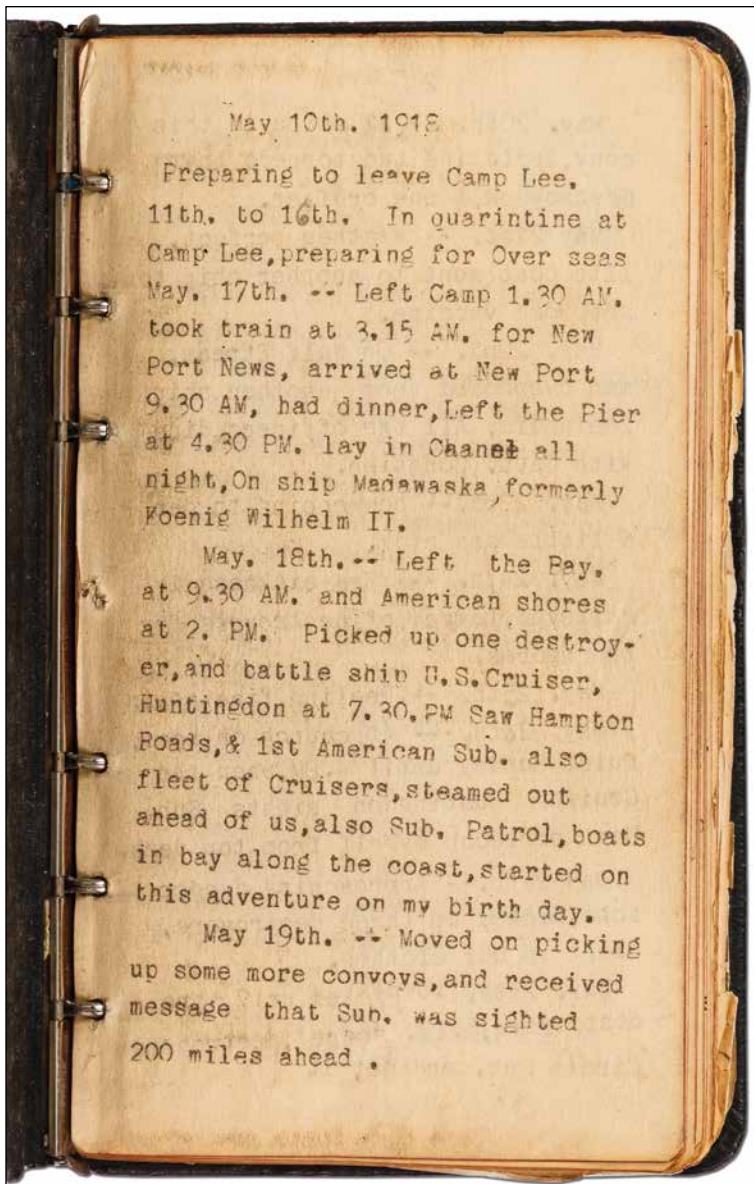 May 10th. 1918
Preparing to leave Camp Lee.
11th. to 16th. In quarintine at
Camp Lee,preparing for Over seas
May. 17th. -- Left Camp 1.30 AM.
took train at 3.15 AM. for New
Port News, arrived at New Port
9.30 AM, had dinner,Left the Pier
at 4.30 PM. lay in Chanel all
night,On ship Madawaska,formerly
Koenig Wilhelm II.
May. 18th.-- Left the Bay.
at 9.30 AM. and American shores
at 2. PM. Picked up one destroy-
er,and battle ship U.S.Cruiser,
Huntingdon at 7.30.PM Saw Hampton
Roads,& 1st American Sub. also
fleet of Cruisers,steamed out
ahead of us,also Sub. Patrol,boats
in bay along the coast,started on
this adventure on my birth day.
May 19th. -- Moved on picking
up some more convoys,and received
message that Sub. was sighted
200 miles ahead .